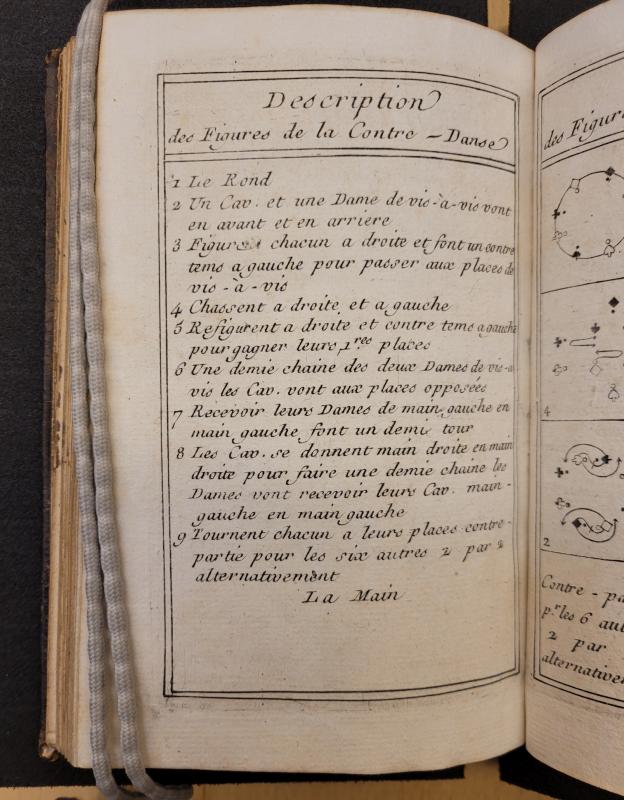 Description
des Figures de la Contre - Danse
1 Le Rond
2 Un Cav. et une Dame de vis-à-vis vont
en avant et en arriere
3 Figurent chacun a droite et font un contre
tems a gauche pour passer aux places de
vis - a - vis
4 Chassent a droite et a gauche
5 Refigurent a droite et contre tems a gauche
pour gagner leurs 1res places
6 Une demie chaine des deux Dames de vis-a
vis les Cav. vont aux places opposées
7 Recevoir leurs Dames de main gauche en
main gauche font un demi tour
8 Les Cav. se donnent main droite en main
droite pour faire une demie chaine les
Dames vont recevoir leurs Cav. main -
gauche en main gauche
9 Tournent chacun a leurs places contre -
partie pour les six autres 2 par 2
alternativement
La Main
des Figur
4
2
Contre - pa
pr les 6 aut
2 par
alternative